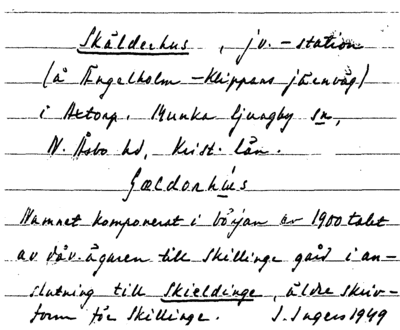 Skälderhus, jv.-station
(å Ängelholm-Klippans järnväg)
i Axtorp. Munka Ljungby sn,
N. Åsbo hd, Krist. län.
Namnet komponerat i början av 1900 talet
av dåv. ägaren till Skillinge gård i an-
slutning till Skieldinge, äldre skriv-
form för Skillinge. I. Ingers 1949